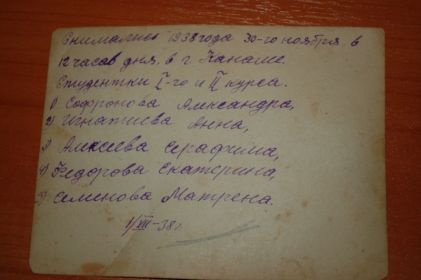 Снимались 1938 года 30-го ноября в
12 часов дня, в г. Канаше.
Студентки I-го и II курса.
1) Софронова Александра,
2) Игнатиева Анна,
3) Алексеева Серафима,
4) Федорова Екатерина,
5) Семенова Матрена.
1/XII-38г.